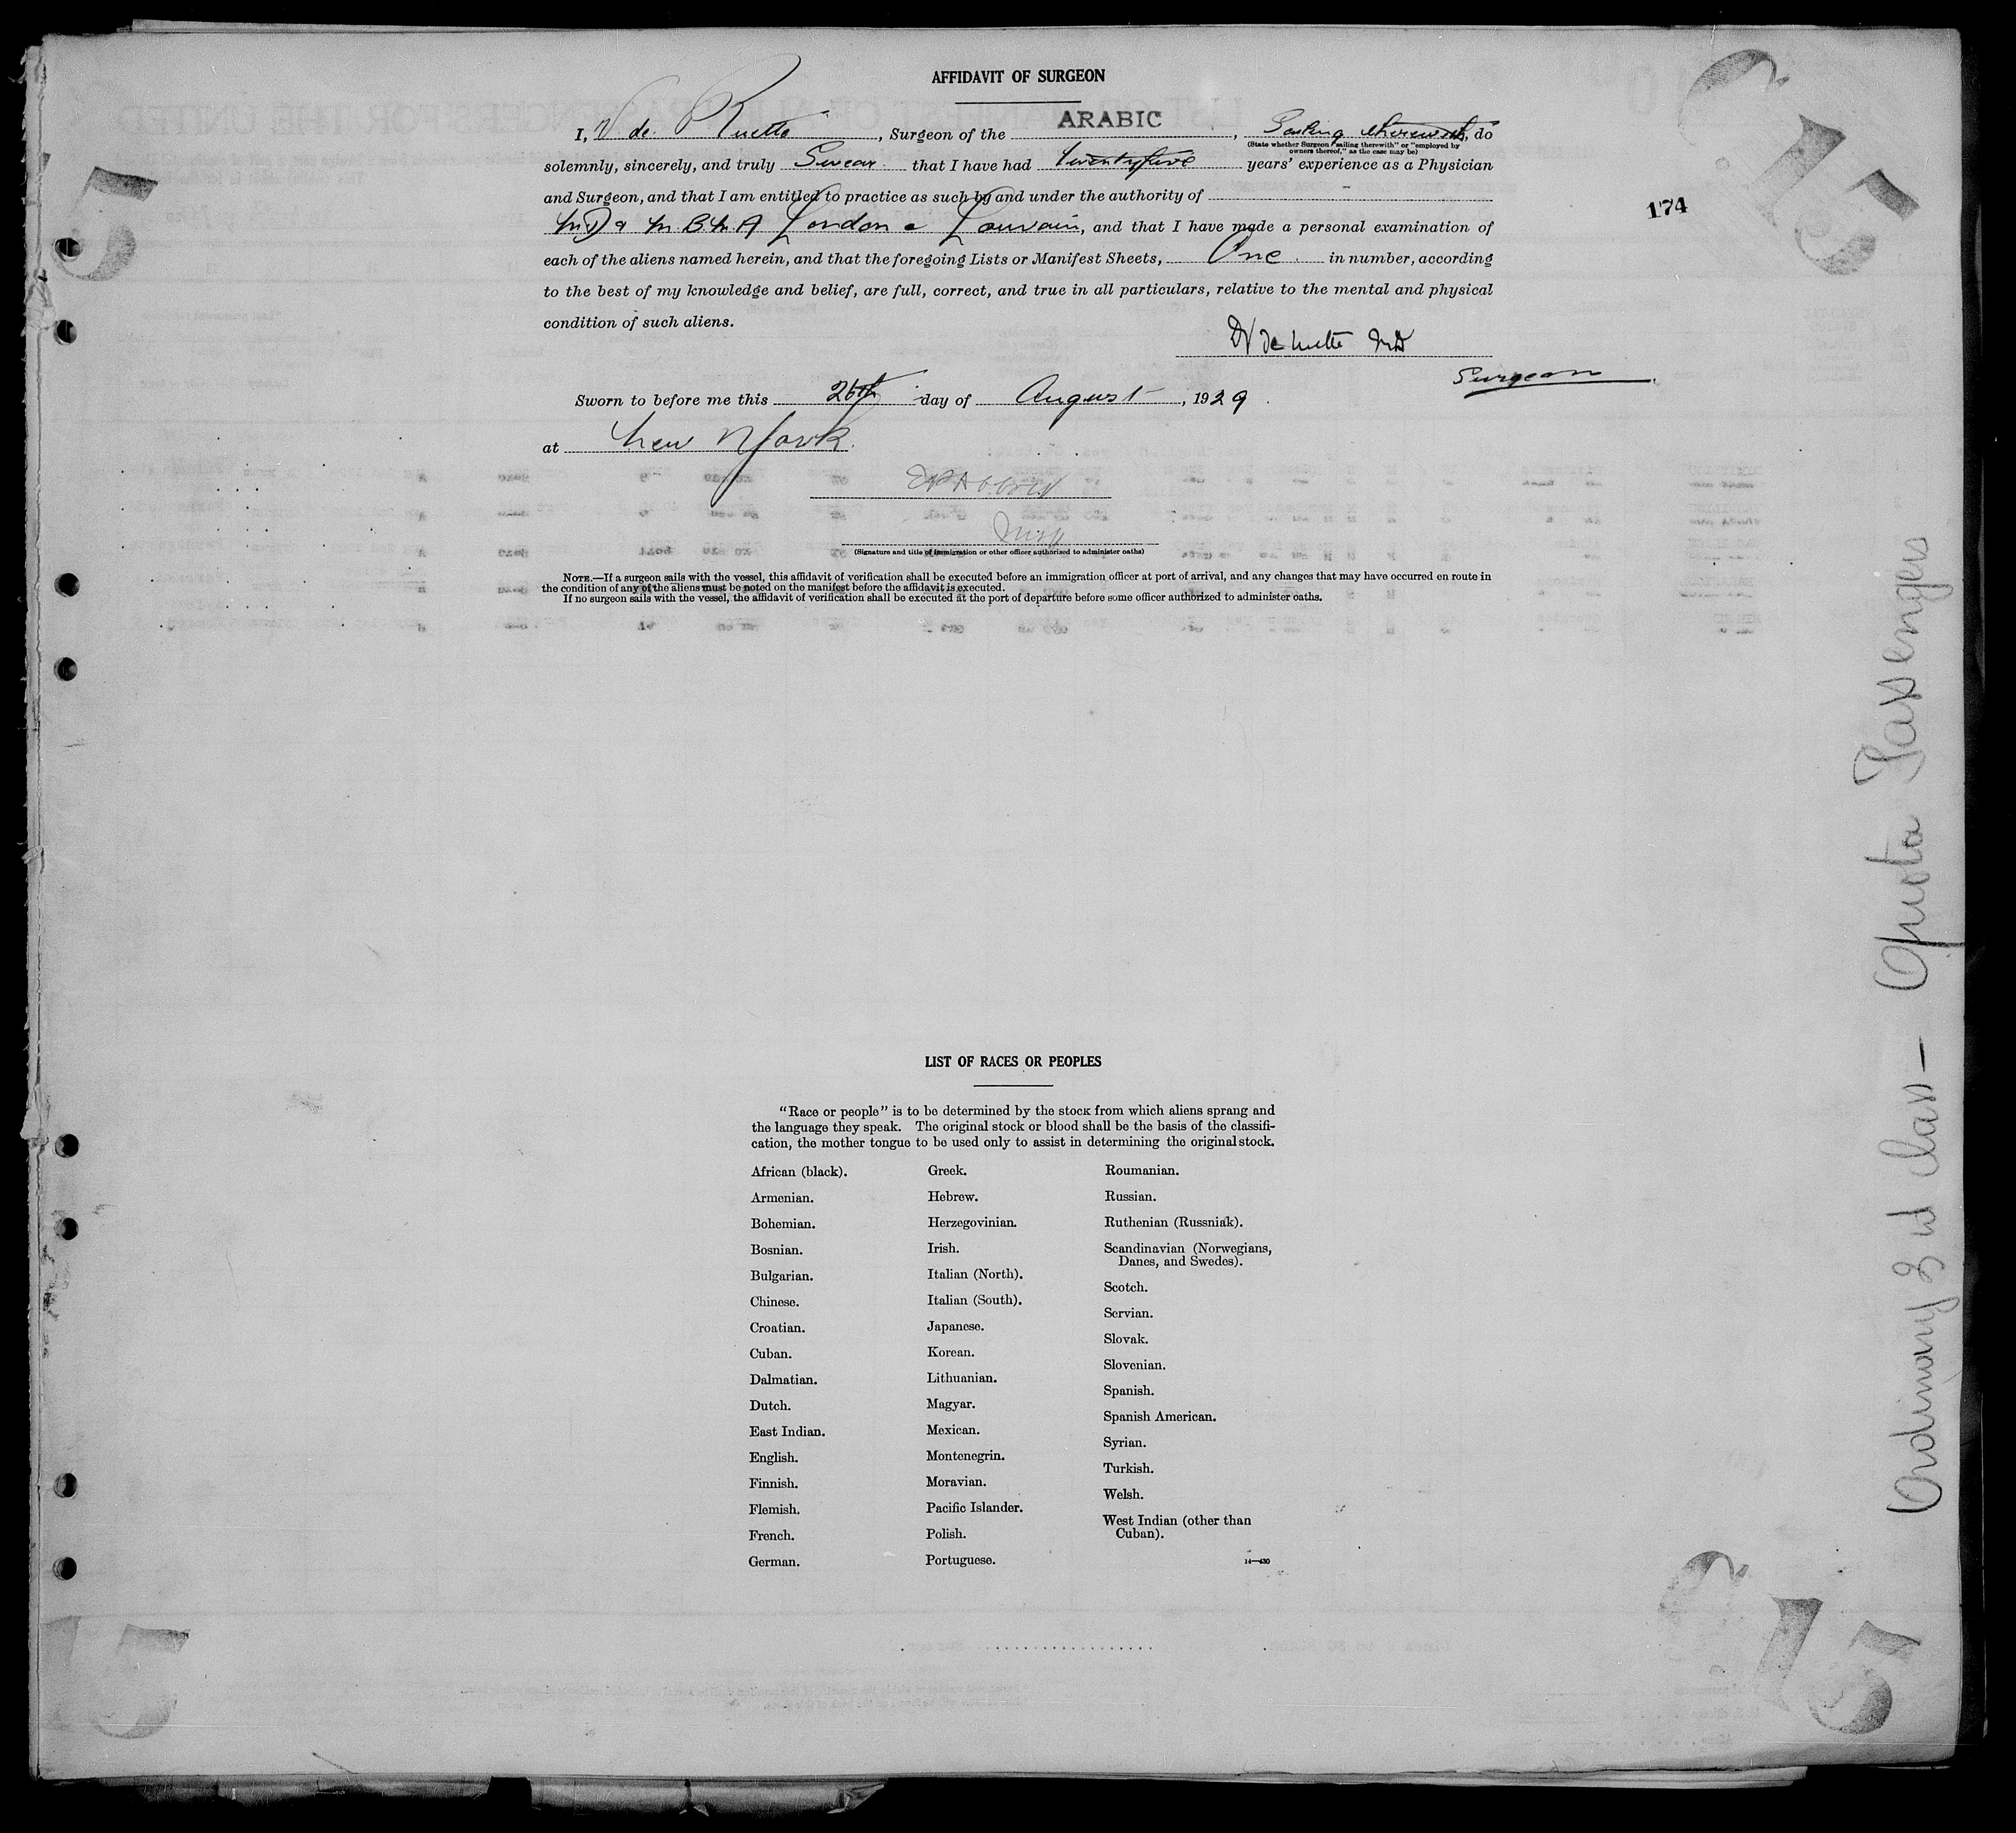 AFFIDAVIT OF SURGEON
I, V de Ruette, Surgeon of the ARABIC, Sailing therewith, do
(State whether Surgeon "sailing therewith" or "employed by
owners thereof," as the case may be)
solemnly, sincerely, and truly Swear that I have had twentyfive years' experience as a Physician
and Surgeon, and that I am entitled to practice as such by and under the authority of
London Louvain, and that I have made a personal examination of
each of the aliens named herein, and that the foregoing Lists or Manifest Sheets, One in number, according
to the best of my knowledge and belief, are full, correct, and true in all particulars, relative to the mental and physical
condition of such aliens.
MD
Surgeon
Sworn to before me this 26th day of August, 1929.
at New York.
(Signature and title of immigration or other officer authorized to administer oaths)
NOTE.—If a surgeon sails with the vessel, this affidavit of verification shall be executed before an immigration officer at port of arrival, and any changes that may have occurred en route in
the condition of any of the aliens must be noted on the manifest before the affidavit is executed.
If no surgeon sails with the vessel, the affidavit of verification shall be executed at the port of departure before some officer authorized to administer oaths.
174
15
5
Ordinary 3rd class — Quota Passengers
LIST OF RACES OR PEOPLES
"Race or people" is to be determined by the stock from which aliens sprang and
the language they speak. The original stock or blood shall be the basis of the classifi-
cation, the mother tongue to be used only to assist in determining the original stock.
African (black).
Armenian.
Bohemian.
Bosnian.
Bulgarian.
Chinese.
Croatian.
Cuban.
Dalmatian.
Dutch.
East Indian.
English.
Finnish.
Flemish.
French.
German.
Greek.
Hebrew.
Herzegovinian.
Irish.
Italian (North).
Italian (South).
Japanese.
Korean.
Lithuanian.
Magyar.
Mexican.
Montenegrin.
Moravian.
Pacific Islander.
Polish.
Portuguese.
Roumanian.
Russian.
Ruthenian (Russniak).
Scandinavian (Norwegians,
Danes, and Swedes).
Scotch.
Servian.
Slovak.
Slovenian.
Spanish.
Spanish American.
Syrian.
Turkish.
Welsh.
West Indian (other than
Cuban).
14—430
5
15